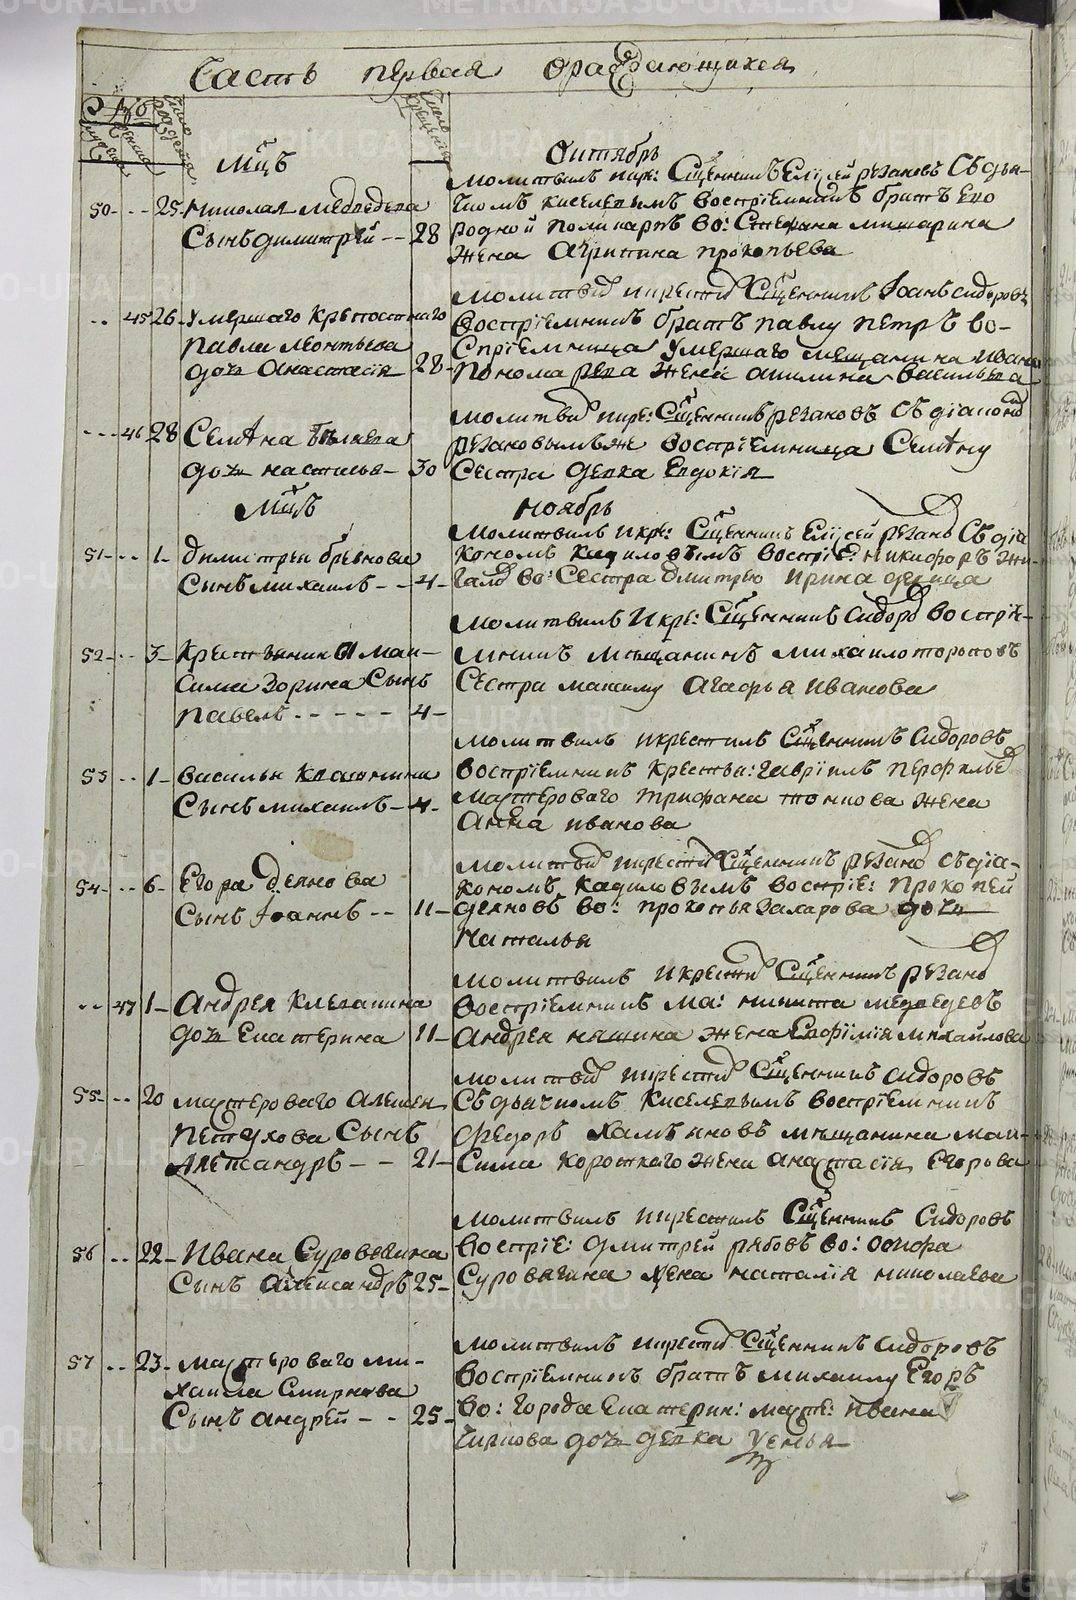 Часть первая ораждающихся
Мцъ
Октябрь
50 -- 25 Николая Медведева
Сынъ Димитрей -- 28
Молитвилъ икре: Сщенникъ Елисей Рѣзановъ Съ дья-
чкомъ Киселевымъ воспрiемникъ братъ Его
родной поликарпъ во: Стефана мишарина
жена Агрипина прокопьева
-- 45 26 Умершаго Крепостнаго
Павла Леонтьева
дочь Анастасiя 28
Молитвил икрестил Сщенникъ Iоанъ Сидоровъ
воспрiемникъ братъ павлу петръ во-
спрiемница умершаго мещанина Ивана
Пономарева жена акилина Васильева
-- 46 28 Семена Беляева
дочь настасья 30
Молитвил икре: Сщенникъ Рѣзановъ Съ дiакономъ
рѣзановымъ же воспрiемница Семену
Сестра девка Евдокiя
Мцъ
Ноябрь
51 -- 1 димитрея бревнова
Сынъ михаилъ -- 4
Молитвилъ икре: Сщенникъ Елисей рѣзано Съ дiа
кономъ кадиловымъ воспрiе: Никифоръ Жи-
гало во: Сестра дмитрею Ирина девица
52 -- 3 Крестьянина Мак-
сима Зорина Сынъ
павелъ ----- 4
Молитвилъ Икре: Сщенникъ Сидоро воспрiе-
мникъ мещанинъ михаило топоповъ
Сестра максиму Агафья Иванова
53 -- 1 василья
Сынъ михаилъ 4
Молитвилъ икрестилъ Сщенникъ Сидоровъ
воспрiемникъ крестья: гаврiилъ перфильев
мастероваго трифана жена
Анна иванова
54 -- 6 Егора деянова
Сынъ Iоаннъ -- 11
молитвил икрестил Сщенникъ рѣзано Съ дiа-
кономъ кадиловымъ воспрiе: прокопей
деяновъ во: прокопья Захарова дочь
Наталья
-- 47 1 Андрея Клевакина
дочь Екатерина 11
Молитвилъ икрестил Сщенникъ рѣзано
воспрiемникъ ма: никита медведевъ
Андрея няшина жена Евфимiя михайлова
55 -- 20 мастероваго Алексея
Петухова Сынъ
Александръ -- 21
Молитвил икрестил Сщенникъ Сидоровъ
Съ дьячкомъ Киселевымъ воспрiемникъ
федоръ халяновъ мещанина мак-
сима короткаго жена анастасiя Егорова
56 -- 22 Ивана Суровѣгина
Сынъ Александръ 25
молитвилъ икрестилъ Сщенникъ Сидоровъ
воспрiе: дмитрей рябовъ во: осифа
Суровягина жена наталiя николаева
57 -- 23 мастероваго ми-
хаила Смирнова
Сынъ андрей -- 25
Молитвилъ икрестил Сщенникъ Сидоровъ
воспрiемникъ братъ михаилу Егоръ
во: города Екатерин: масте: ивана
чиркова дочь девка